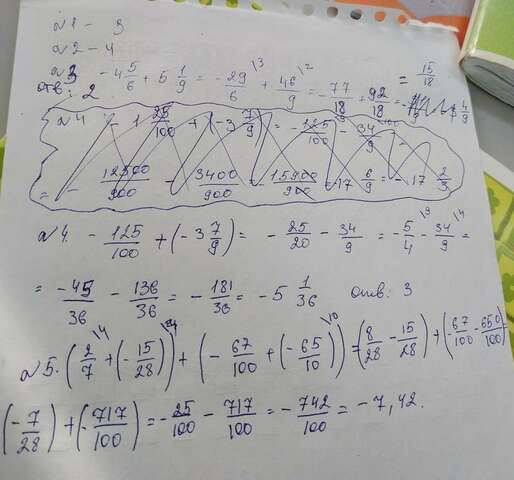 №1 - 3
№2 - 4
№3 - 4 5/6 + 5 1/9 = - 29/6 \3 + 46/9 \2 = - 77/18 + 92/18 = = 15/18
отв: 2
№4 - 1 25/100 + (-3 7/9) = - 125/100 - 34/9 =
= - 12500/900 - 3400/900 = - 15900/900 = - 17 6/9 = - 17 2/3
№4. - 125/100 + (-3 7/9) = - 25/20 - 34/9 = - 5/4 \9 - 34/9 \4 =
= -45/36 - 136/36 = - 181/36 = - 5 1/36 отв: 3
№5. (2/7 \4 + (- 15/28)) + (- 67/100 + (- 65/10 \10)) = (8/28 - 15/28) + (- 67/100 - 650/100) =
(- 7/28) + (- 717/100) = - 25/100 - 717/100 = - 742/100 = - 7,42.